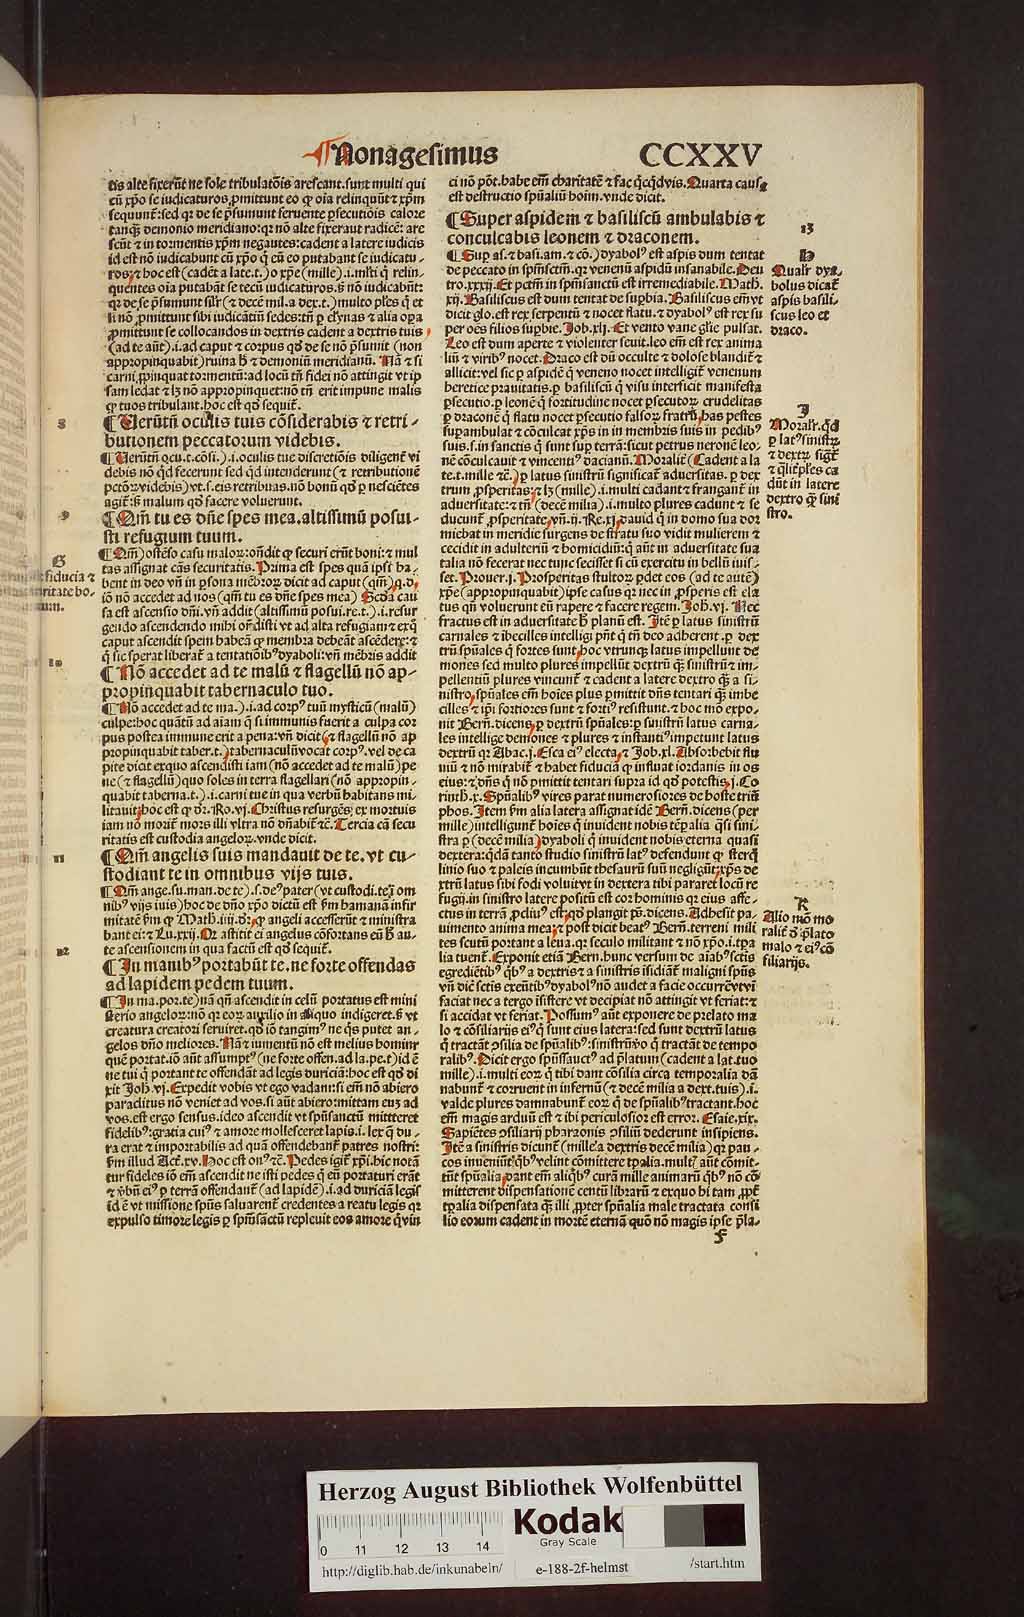 ¶ Nonagesimus
CCXXV
tis alte fixerũt ne sole tribulatõis arescant. sunt multi qui
cũ xp̃o se iudicaturos ꝓmittunt eo ꝙ oĩa relinquũt ⁊ xp̃m
sequunt̃: sed qꝛ de se p̃sumunt feruente ꝑsecutiõis caloꝛe
tanq̃ȝ demonio meridiano: qꝛ nõ alte fixeraut radicẽ: are
scũt ⁊ in toꝛmentis xp̃m negãtes: cadent a latere iudicis
id est nõ iudicabunt cũ xp̃o q̃ cũ eo putabant se iudicatu-
ros; ⁊ hoc est (cadẽt a late.t.) o xp̃e (mille) .i. ml̃ti q̃ relin-
quentes oĩa putabãt se tecũ iudicatũros. s̃ nõ iudicabũt:
qꝛ de se p̃sumunt sil̃r (⁊ decẽ mil. a dex.t.) multo pl̃es q̃ et
si nõ ꝓmittunt sibi iudicãtiũ sedes: tñ ꝑ el̃ynas ⁊ alia oꝑa
ꝓmittunt se collocandos in dextris cadent a dextris tuis
(ad te aũt) .i. ad caput ⁊ coꝛpus qd̃ de se nõ p̃sumit (non
appꝛopinquabit) ruina h̃ ⁊ demoniũ meridianũ. Nã ⁊ si
carni ꝓpinquat toꝛmentũ: ad locũ tñ fidei nõ attingit vt ip
sam ledat ⁊ lȝ nõ appꝛopinquet: nõ tñ erit impune malis
ꝙ tuos tribulant. hoc est qd̃ sequit̃.
8
¶ Uerũtñ oculis tuis cõsiderabis ⁊ retri-
butionem peccatoꝛum videbis.
¶ Uerũtñ ocu.t.cõsi.) .i. oculis tue discretiõis diligent̃ vi
debis nõ qd̃ fecerunt sed qd̃ intenderunt (⁊ retributionẽ
pctõꝝ videbis) vt .s. eis retribuas. nõ bonũ qd̃ ꝑ nesciẽtes
agit̃: s̃ malum qd̃ facere voluerunt.
9
¶ Qm̃ tu es dñe spes mea. altissimũ posui-
sti refugium tuum.
G
fiducia ⁊
ritate bo-
num.
¶ Qm̃) ostẽso casu maloꝝ: oñdit ꝙ securi erũt boni: ⁊ mul
tas assignat cãs securitatis. Prima est spes quã ipsi ha-
bent in deo vñ in ꝑsona mẽbꝛoꝝ dicit ad caput (qm̃) q.d.
iõ nõ accedet ad nos (qm̃ tu es dñe spes mea) Scd̃a cau
sa est ascensio dñi. vñ addit (altissimũ posui.re.t.) .i. resur
gendo ascendendo mihi oñdisti vt ad alta refugiam ⁊ ex q̃
caput ascendit spem habeã ꝙ membꝛa debeãt ascẽdere: ⁊
q̃ sic sperat liberat̃ a tentatiõibꝰ dyaboli: vñ mẽbꝛis addit
10
¶ Nõ accedet ad te malũ ⁊ flagellũ nõ ap-
pꝛopinquabit tabernaculo tuo.
¶ Nõ accedet ad te ma.) .i. ad coꝛpꝰ tuũ mysticũ (malũ)
culpe: hoc quãtũ ad aĩam q̃ si immunis fuerit a culpa coꝛ
pus postea immune erit a pena: vñ dicit (⁊ flagellũ nõ ap
pꝛopinquabit taber.t.) tabernaculũ vocat coꝛpꝰ. vel de ca
pite dicit exquo ascendisti iam (nõ accedet ad te malũ) pe
ne (⁊ flagellũ) quo soles in terra flagellari (nõ appꝛopin-
quabit taberna.t.) .i. carni tue in qua verbũ habitans mi-
litauit; hoc est ꝙ dꝛ. Ro. vj. Christus resurgẽs; ex moꝛtuis
iam nõ moꝛit̃ moꝛs illi vltra nõ dñabit̃ ⁊c̃. Tercia cã secu
ritatis est custodia angeloꝝ. vnde dicit.
11
¶ Qm̃ angelis suis mandauit de te. vt cu-
stodiant te in omnibus vijs tuis.
¶ Qm̃ ange.su.man.de te) .s. deꝰ pater (vt custodi. te in om
nibꝰ vijs tuis) hoc de dño xp̃o dictũ est s̃m humanã infir
mitatẽ s̃m ꝙ Math. iiij. dꝛ. ꝙ angeli accesserũt ⁊ ministra
bant ei: ⁊ Lu. xxij. Qꝛ astitit ei angelus cõfoꝛtans eũ h̃ au-
te ascensionem in qua factũ est qd̃ sequit̃.
12
¶ In manibꝰ poꝛtabũt te. ne foꝛte offendas
ad lapidem pedem tuum.
¶ In ma.poꝛ.te) nã qñ ascendit in celũ poꝛtatus est mini
sterio angeloꝝ: nõ qꝛ eoꝝ auxilio in aliquo indigeret. s̃ vt
creatura creatoꝛi seruiret. qd̃ iõ tangimꝰ ne q̃s putet an-
gelos dño melioꝛes. Nã ⁊ iumentũ nõ est melius homine
quẽ poꝛtat. iõ aũt assumptꝰ (ne foꝛte offen. ad la.pe.t) id ẽ
ne tui q̃ poꝛtant te offendãt ad legis duriciã: hoc est qd̃ di
xit Joh̃. vj. Expedit vobis vt ego vadam: si em̃ nõ abiero
paraclitus nõ veniet ad vos. si aũt abiero: mittam euȝ ad
vos. est ergo sensus. ideo ascendit vt spũsanctũ mitteret
fidelibꝰ: gratia cuiꝰ ⁊ amoꝛe mollesceret lapis .i. lex q̃ du-
ra erat ⁊ impoꝛtabilis ad quã offendebant̃ patres nostri:
s̃m illud Act̃. xv. Hoc est onꝰ ⁊c̃. Pedes igit̃ xp̃i. hic notã
tur fideles iõ em̃ ascendit ne isti pedes q̃ eũ poꝛtaturi erãt
⁊ v̾bũ eiꝰ ꝑ terrã offendant̃ (ad lapidẽ) .i. ad duriciã legis
id ẽ vt missione spũs saluarent̃ credentes a reatu legis qꝛ
expulso timoꝛe legis ꝑ spm̃sanctũ repleuit eos amoꝛe q̃ vin
ci nõ põt. habe em̃ charitatẽ ⁊ fac q̃cqd̃vis. Quarta causa
est destructio spũaliũ hoim̃. vnde dicit.
13
¶ Super aspidem ⁊ basiliscũ ambulabis ⁊
conculcabis leonem ⁊ draconem.
H
Qualr̃ dya-
bolus dicat̃
aspis basili-
scus leo et
draco.
¶ Suꝑ as. ⁊ basi.am. ⁊ cõ.) dyabolꝰ est aspis dum tentat
de peccato in spm̃sctm̃. qꝛ venenũ aspidũ insanabile. Deu
tro. xxxij. Et pctm̃ in spm̃sanctũ est irremediabile. Math̃.
xij. Basiliscus est dum tentat de suꝑbia. Basiliscus em̃ vt
dicit glo. est rex serpentũ ⁊ nocet flatu. ⁊ dyabolꝰ est rex su
per oẽs filios suꝑbie. Job. xlj. Et vento vane gl̃ie pulsat.
Leo est dum aperte ⁊ violenter seuit. leo em̃ est rex anima
liũ ⁊ viribꝰ nocet. Draco est dũ occulte ⁊ dolose blandit̃ ⁊
allicit: vel sic ꝑ aspidẽ q̃ veneno nocet intelligit̃ venenum
heretice pꝛauitatis. ꝑ basiliscũ q̃ visu interficit manifesta
ꝑsecutio. ꝑ leonẽ q̃ foꝛtitudine nocet ꝑsecutoꝝ crudelitas
ꝑ draconẽ q̃ flatu nocet ꝑsecutio falsoꝝ fratrũ, has pestes
suꝑambulat ⁊ cõculcat xp̃s in in membꝛis suis in pedibꝰ
suis .s. in sanctis q̃ sunt suꝑ terrã: sicut petrus neronẽ leo-
nẽ cõculcauit ⁊ vincentiꝰ dacianũ.
J
Moralr̃. qd̃
ꝑ latꝰ sinistrũ
⁊ dextrũ sigt̃
⁊ q̃lit̃ pl̃es ca
dũt in latere
dextro q̃ȝ sini
stro.
Moralit̃ (Cadent a la
te.t. mille ⁊c̃.) ꝑ latus sinistrũ significat̃ aduersitas. ꝑ dex
trum ꝓsperitas; ⁊ lȝ (mille) .i. multi cadant ⁊ frangant̃ in
aduersitate: ⁊ tñ (decẽ milia) .i. multo plures cadunt ⁊ se
ducunt̃ ꝓsperitate, vñ .ij. Re. xj. dauid q̃ in domo sua doꝛ
miebat in meridie surgens de stratu suo vidit mulierem ⁊
cecidit in adulteriũ ⁊ homicidiũ: q̃ aũt in aduersitate sua
talia nõ fecerat nec tunc fecisset si cũ exercitu in bellũ iuis-
set. Prouer. j. Prosperitas stultoꝝ ꝑdet eos (ad te autẽ)
xp̃e (appꝛopinquabit) ipse casus qꝛ nec in ꝓsperis est ela
tus qñ voluerunt eũ rapere ⁊ facere regem. Joh̃. vj. Nec
fractus est in aduersitate h̃ planũ est. Itẽ ꝑ latus sinistrũ
carnales ⁊ ĩbecilles intelligi pñt q̃ tñ deo adherent. ꝑ dex
trũ spũales q̃ foꝛtes sunt, hoc vtrunqȝ latus impellunt de
mones sed multo plures impellũt dextrũ q̃ȝ sinistrũ ⁊ im-
pellentiũ plures vincunt̃ ⁊ cadent a latere dextro q̃ȝ a si-
nistro, spũales em̃ hoies plus ꝑmittit dñs tentari q̃ȝ imbe
cilles ⁊ ip̃i foꝛtioꝛes sunt ⁊ foꝛtiꝰ resistunt. ⁊ hoc mõ expo-
nit Berñ. dicens, ꝑ dextrũ spũales: ꝑ sinistrũ latus carna-
les intellige demones ⁊ plures ⁊ instantiꝰ impetunt latus
dextrũ qꝛ Abac. j. Esca eiꝰ electa, ⁊ Job. xl. Absoꝛbebit flu
uiũ ⁊ nõ mirabit̃ ⁊ habet fiduciã ꝙ influat ioꝛdanis in os
eius: ⁊ dñs q̃ nõ ꝑmittit tentari supꝛa id qd̃ potestis. j. Co
rinth. x. Spũalibꝰ vires parat numerosioꝛes de hoste triũ
phos. Item s̃m alia latera assignat idẽ Berñ. dicens (per
mille) intelligunt̃ hoies q̃ inuident nobis tẽpalia q̃si sini-
stra ꝑ (decẽ milia) dyaboli q̃ inuident nobis eterna quasi
dextera: qd̃ã tanto studio sinistrũ latꝰ defendunt ꝙ sterq̃
linio suo ⁊ paleis incumbũt thesaurũ suũ negligũt; xp̃s de
xtrũ latus sibi fodi voluit vt in dextera tibi pararet locũ re
fugij. in sinistro latere positũ est coꝛ hominis qꝛ eius affe-
ctus in terrã ꝓcliuꝰ est, qd̃ plangit pꝝ. dicens. Adhesit pa-
uimento anima mea; ⁊ post dicit beatꝰ Berñ. terreni mili
tes scutũ poꝛtant a leua. qꝛ seculo militant ⁊ nõ xp̃o. i. tp̃a
lia tuent̃. Exponit etiã Bern. hunc versum de aĩabꝰ sctis
egrediẽtibꝰ q̃bꝰ a dextris ⁊ a sinistris isidiãt̃ maligni spũs
vñ diẽ sctis exeũtibꝰ dyabolꝰ nõ audet a facie occurrẽ vt vĩ
faciat nec a tergo ĩsistere vt decipiat nõ attingit vt feriat: ⁊
si accidat vt feriat.
K
Alio mõ mo
ralit̃ d̾ p̃lato
malo ⁊ eiꝰ cõ
siliarijs.
Possumꝰ aũt exponere de pꝛelato ma
lo ⁊ cõsiliarijs eiꝰ q̃ sunt eius latera: sed sunt dextrũ latus
q̃ tractãt ꝯsilia de spũalibꝰ: sinistrũ v̾o q̃ tractãt de tempo
ralibꝰ. Dicit ergo spũssauctꝰ ad p̃latum (cadent a lat. tuo
mille) .i. multi eoꝝ q̃ tibi dant cõsilia circa tempoꝛalia dã
nabunt̃ ⁊ coꝛruent in infernũ (⁊ decẽ milia a dext. tuis) .i.
valde plures damnabunt̃ eoꝝ q̃ de spũalibꝰ tractant. hoc
em̃ magis arduũ est ⁊ ibi periculosioꝛ est erroꝛ. Esaie. xix.
Sapiẽtes ꝯsiliarij pharaonis ꝯsiliũ dederunt insipiens.
Itẽ a sinistris dicunt̃ (mille: a dextris decẽ milia) qꝛ pau-
cos inueniũt q̃bꝰ velint cõmittere tꝑalia. multꝭ aũt cõmit-
tũt spũalia, dant em̃ aliq̃bꝰ curã mille animarũ q̃bꝰ nõ cõ
mitterent dispensationẽ centũ librarũ ⁊ exquo bi tam ꝓpt̃
tꝑalia dispensata q̃ȝ illi ꝓpter spũalia male tractata consi
lio eoꝛum cadent in moꝛtẽ eternã quõ nõ magis ipse p̃la-
F
Herzog August Bibliothek Wolfenbüttel
Kodak
Gray Scale
0 11 12 13 14
http://diglib.hab.de/inkunabeln/
e-188-2f-helmst
/start.htm